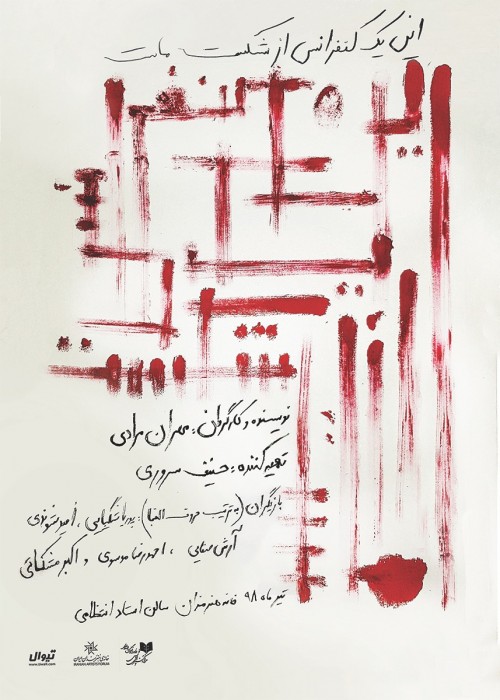 این یک کنفرانس از شکست ماست
نویسنده و کارگردان: مهران مرادی
تهیه کننده: حنیف سروری
بازیگران (به ترتیب حروف الفبا): پوریا شکیبایی، امید
آرش سنایی، احمدرضا موسوی و اکبر مشکاتی
تیر ماه ۹۸ خانه هنرمندان سالن استاد انتظامی
تیوال